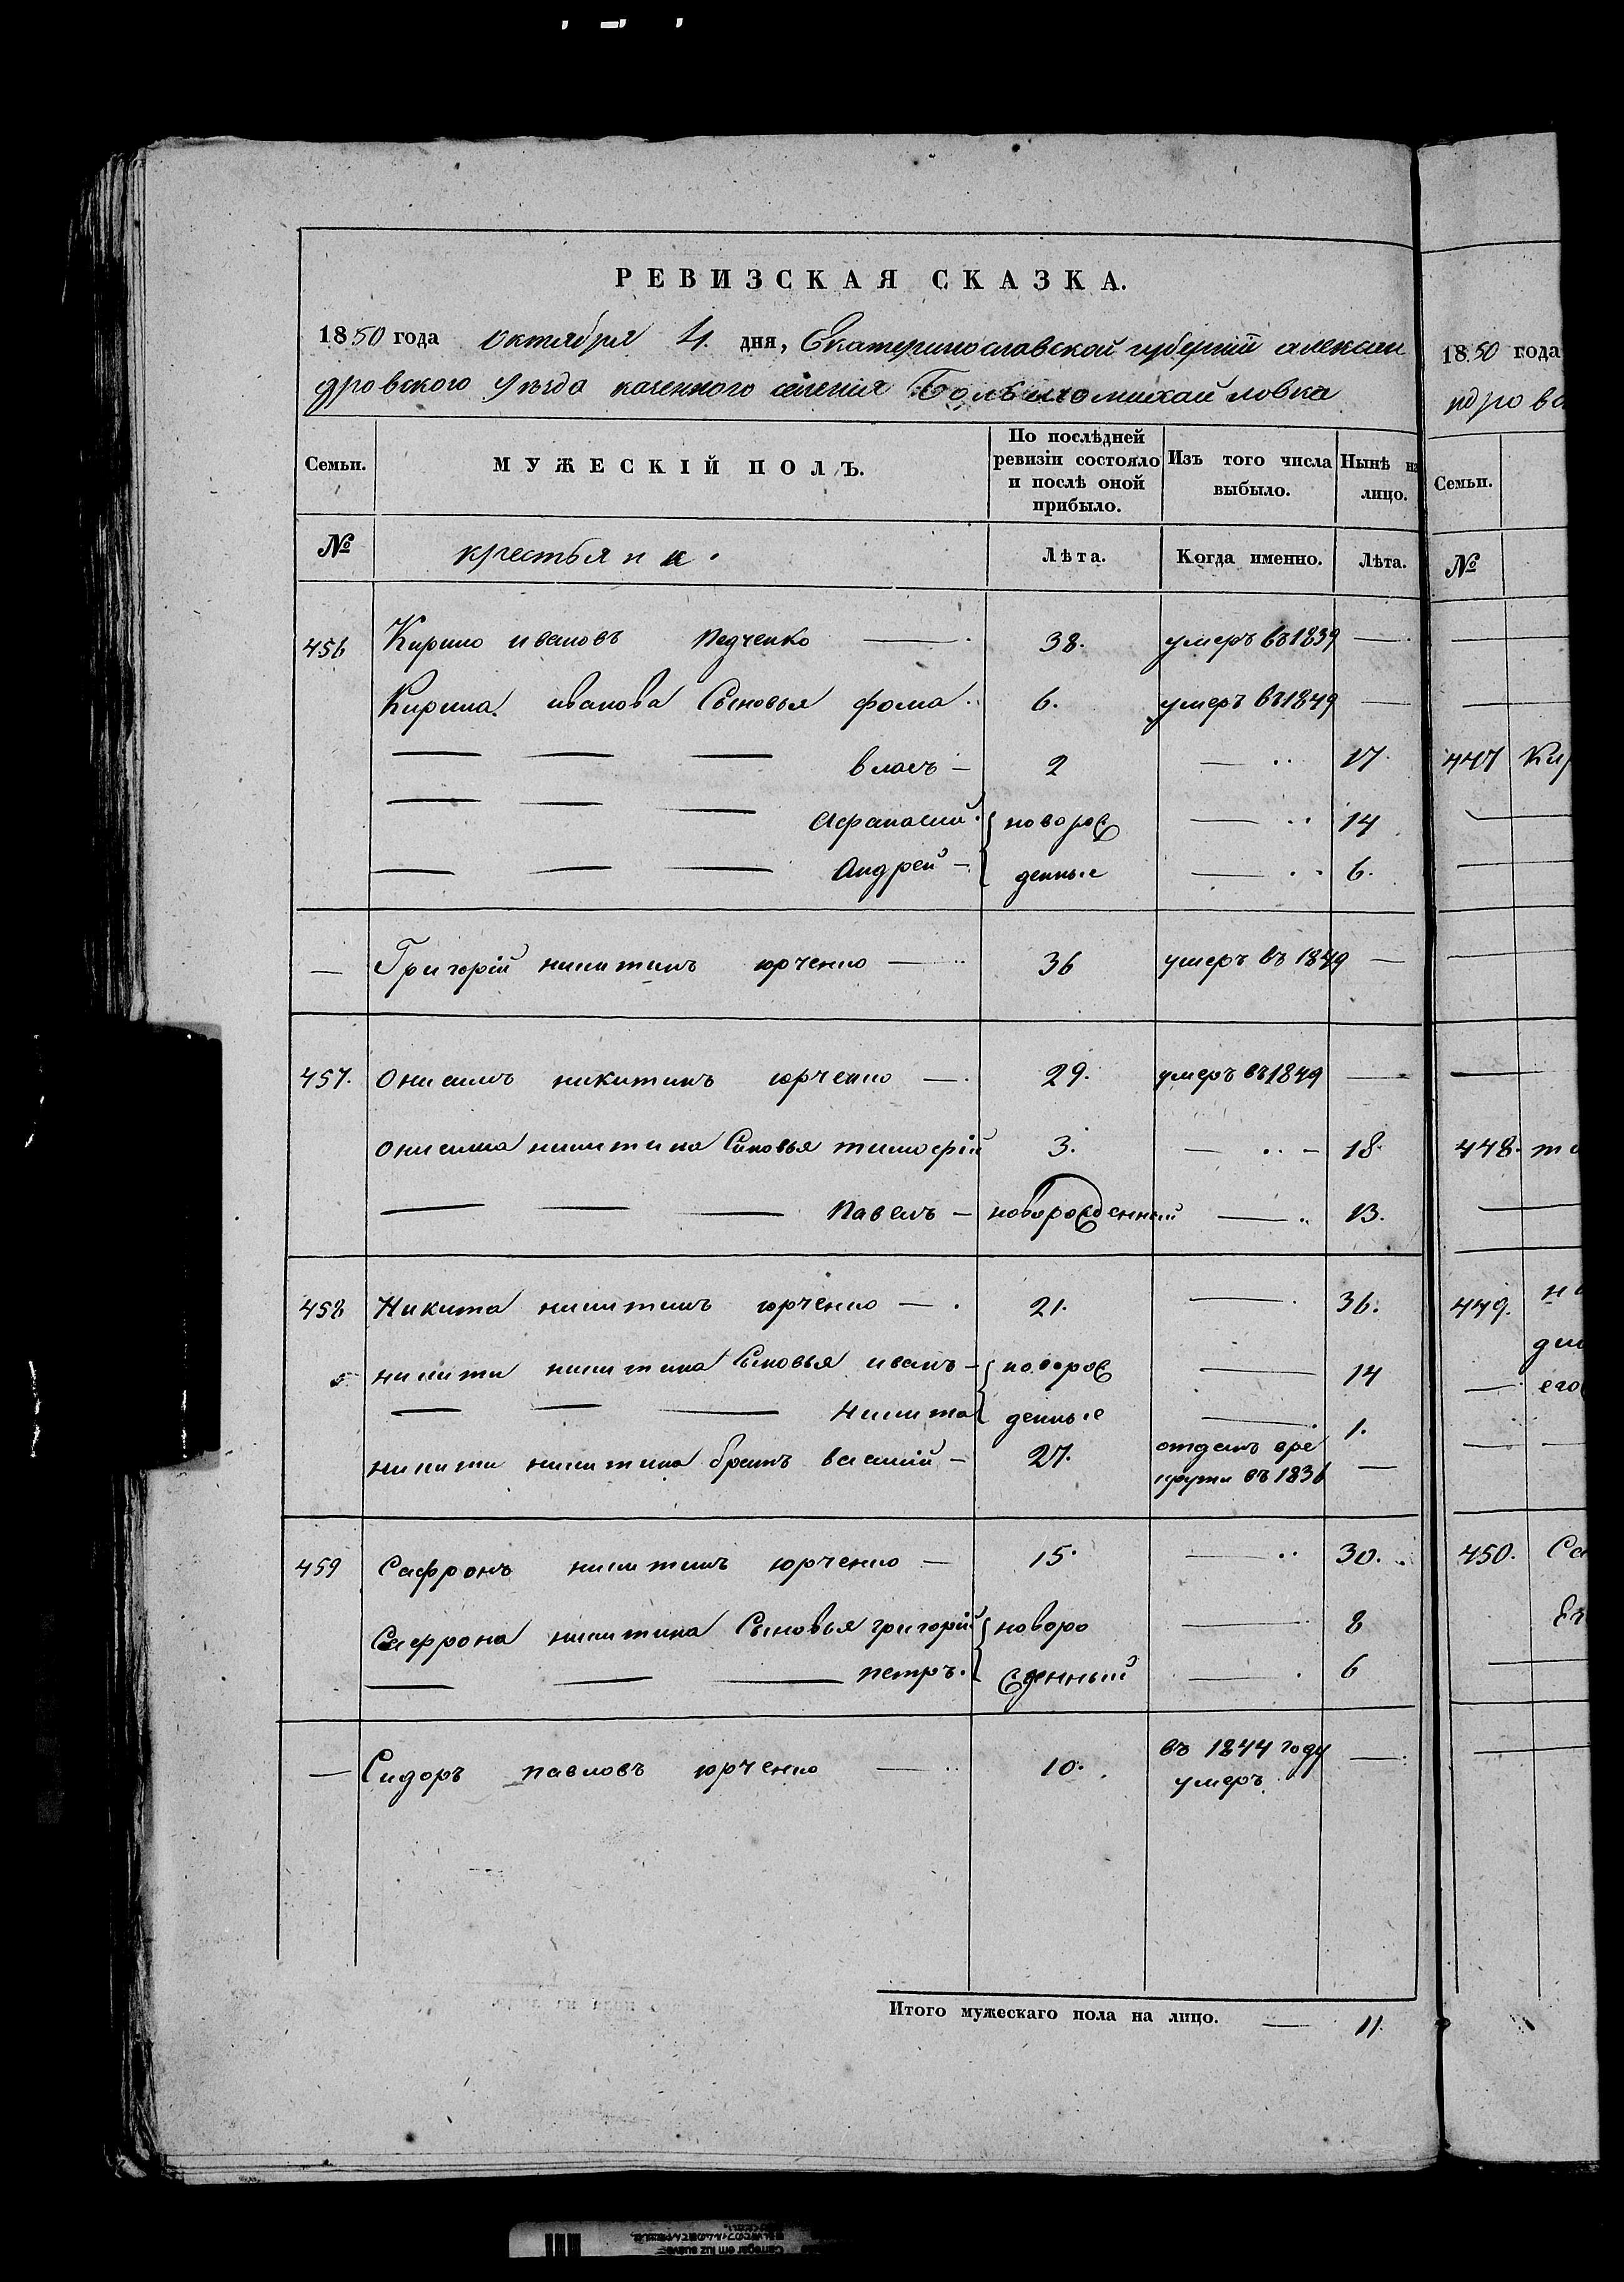 РЕВИЗСКАЯ СКАЗКА.
1850 года октября 4. дня, Екатеринославской губерніи алексан
дровского уѣзда казенного селения Большемихайловка
Семьи. МУЖЕСКІЙ ПОЛЪ. По послѣдней ревизіи состояло и послѣ оной прибыло. Изъ того числа выбыло. Нынѣ на лицо.
№ крестьяни. Лѣта. Когда именно. Лѣта.
456 Кирило ивановъ Педченко — 38. умеръ въ 1839 —
Кирила иванова Сыновья фома 6. умеръ въ 1849 —
— — — власъ — 2 — 17.
— — — Афанасий { новорож — 14
— — — Андрей — { денные — 6.
— Григорій никитинъ юрченко — 36 умеръ въ 1849 —
457. Онисимъ никитинъ юрченко — 29. умеръ въ 1849 —
Онисима никитина Сыновья тимофій 3. — 18.
— — — Павелъ — новорожденный — 13.
458 Никита никитинъ юрченко — 21. — 36.
никиты никитина Сыновья иванъ — { новорож — 14
— — — Никита { денные — 1.
никиты никитина братъ василий — 27. отданъ в ре
круты въ 1836 —
459 Сафронъ никитинъ юрченко — 15. — 30.
Сафрона никитина Сыновья григорій { новоро — 8
— — — петръ. { жденный — 6
— Сидоръ павловъ юрченко — 10. въ 1844 году —
умеръ.
Итого мужескаго пола на лицо. — 11.
1850 года
Семьи.
№
447
448.
449.
450.